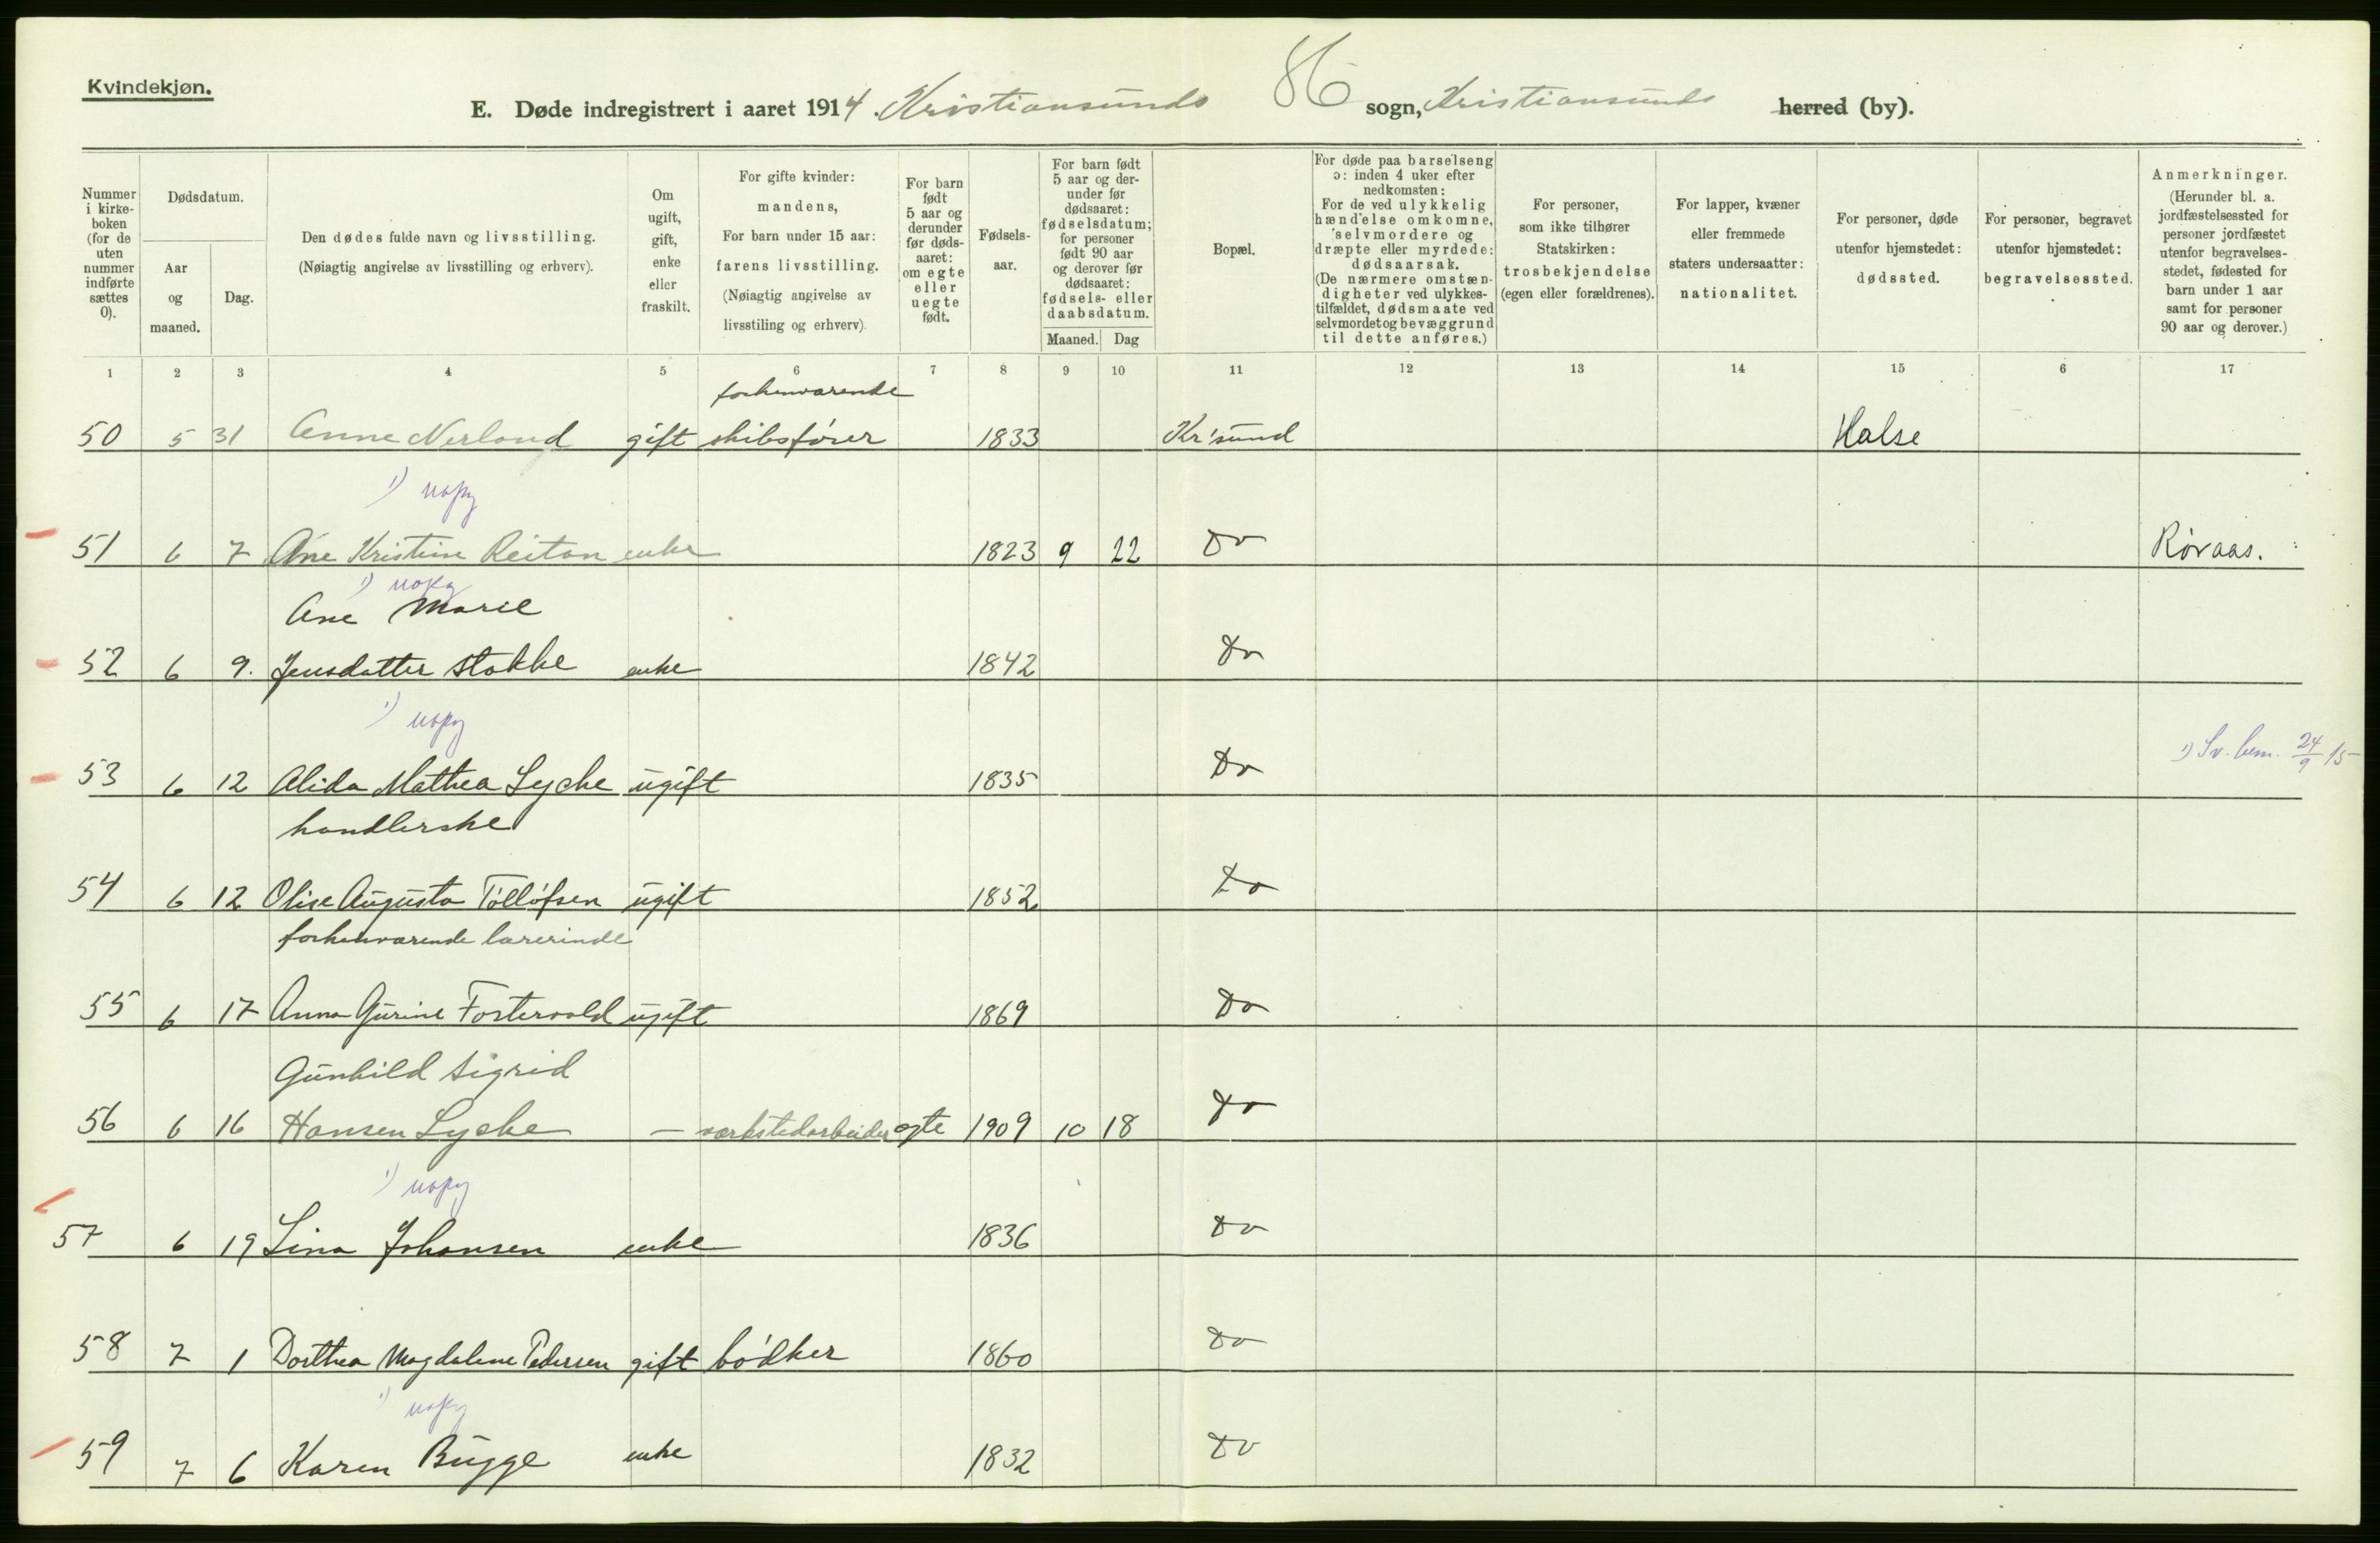 Kvindekjøn.
86
E. Døde indregistrert i aaret 1914. Kristiansunds sogn, Kristiansunds herred (by).
Nummer i kirke-boken (for de uten nummer indførte sættes 0).
Dødsdatum.
Aar og maaned.
Dag.
Den dødes fulde navn og livsstilling.
(Nøiagtig angivelse av livsstilling og erhverv).
Om ugift, gift, enke eller fraskilt.
For gifte kvinder: mandens,
For barn under 15 aar: farens livsstilling.
(Nøiagtig angivelse av livsstiling og erhverv).
For barn født 5 aar og derunder før døds-aaret: om egte eller uegte født.
Fødsels-aar.
For barn født 5 aar og der-under før dødsaaret: fødselsdatum; for personer født 90 aar og derover før dødsaaret: fødsels- eller daabsdatum.
Maaned. Dag
Bopæl.
For døde paa barselseng ɔ: inden 4 uker efter nedkomsten:
For de ved ulykkelig hændelse omkomne, selvmordere og dræpte eller myrdede: dødsaarsak.
(De nærmere omstæn-digheter ved ulykkes-tilfældet, dødsmaate ved selvmordet og bevæggrund til dette anføres.)
For personer, som ikke tilhører Statskirken: trosbekjendelse (egen eller forældrenes).
For lapper, kvæner eller fremmede staters undersaatter: nationalitet.
For personer, døde utenfor hjemstedet: dødssted.
For personer, begravet utenfor hjemstedet: begravelsessted.
Anmerkninger.
(Herunder bl. a. jordfæstelsessted for personer jordfæstet utenfor begravelses-stedet, fødested for barn under 1 aar samt for personer 90 aar og derover.)
1 2 3 4 5 6 7 8 9 10 11 12 13 14 15 6 17
forhenværende
50 5 31 Anne Nerland gift skibsfører 1833 Kr'sund Halse
1)
51 6 7 Ane Kristine Reitan enke 1823 9 22 Do Røraas.
1)
Ane Marie
52 6 9. Jensdatter Stokke enke 1842 Do
1)
1) Sv. bem. 24/9 15
53 6 12 Alida Mathea Lyche ugift 1835 Do
handlerske
54 6 12 Olise Augusta Tolløfsen ugift 1852 Do
forhenværende lærerinde
55 6 17 Anna Gurine Fostervold ugift 1869 Do
Gunhild Sigrid
56 6 16 Hansen Lyche — værkstedarbeider egte 1909 10 18 Do
1)
57 6 19 Lina Johansen enke 1836 Do
58 7 1 Dorthea Magdalene Pedersen gift bødker 1860 Do
1)
59 7 6 Karen Bugge enke 1832 Do